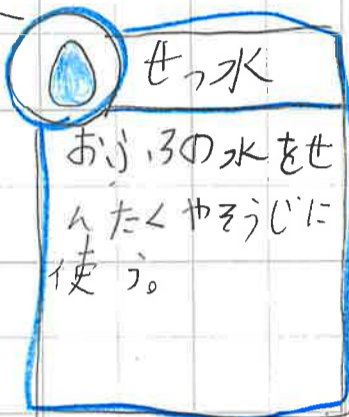 せっ水
おふろの水をせ
んたくやそうじに
使う。